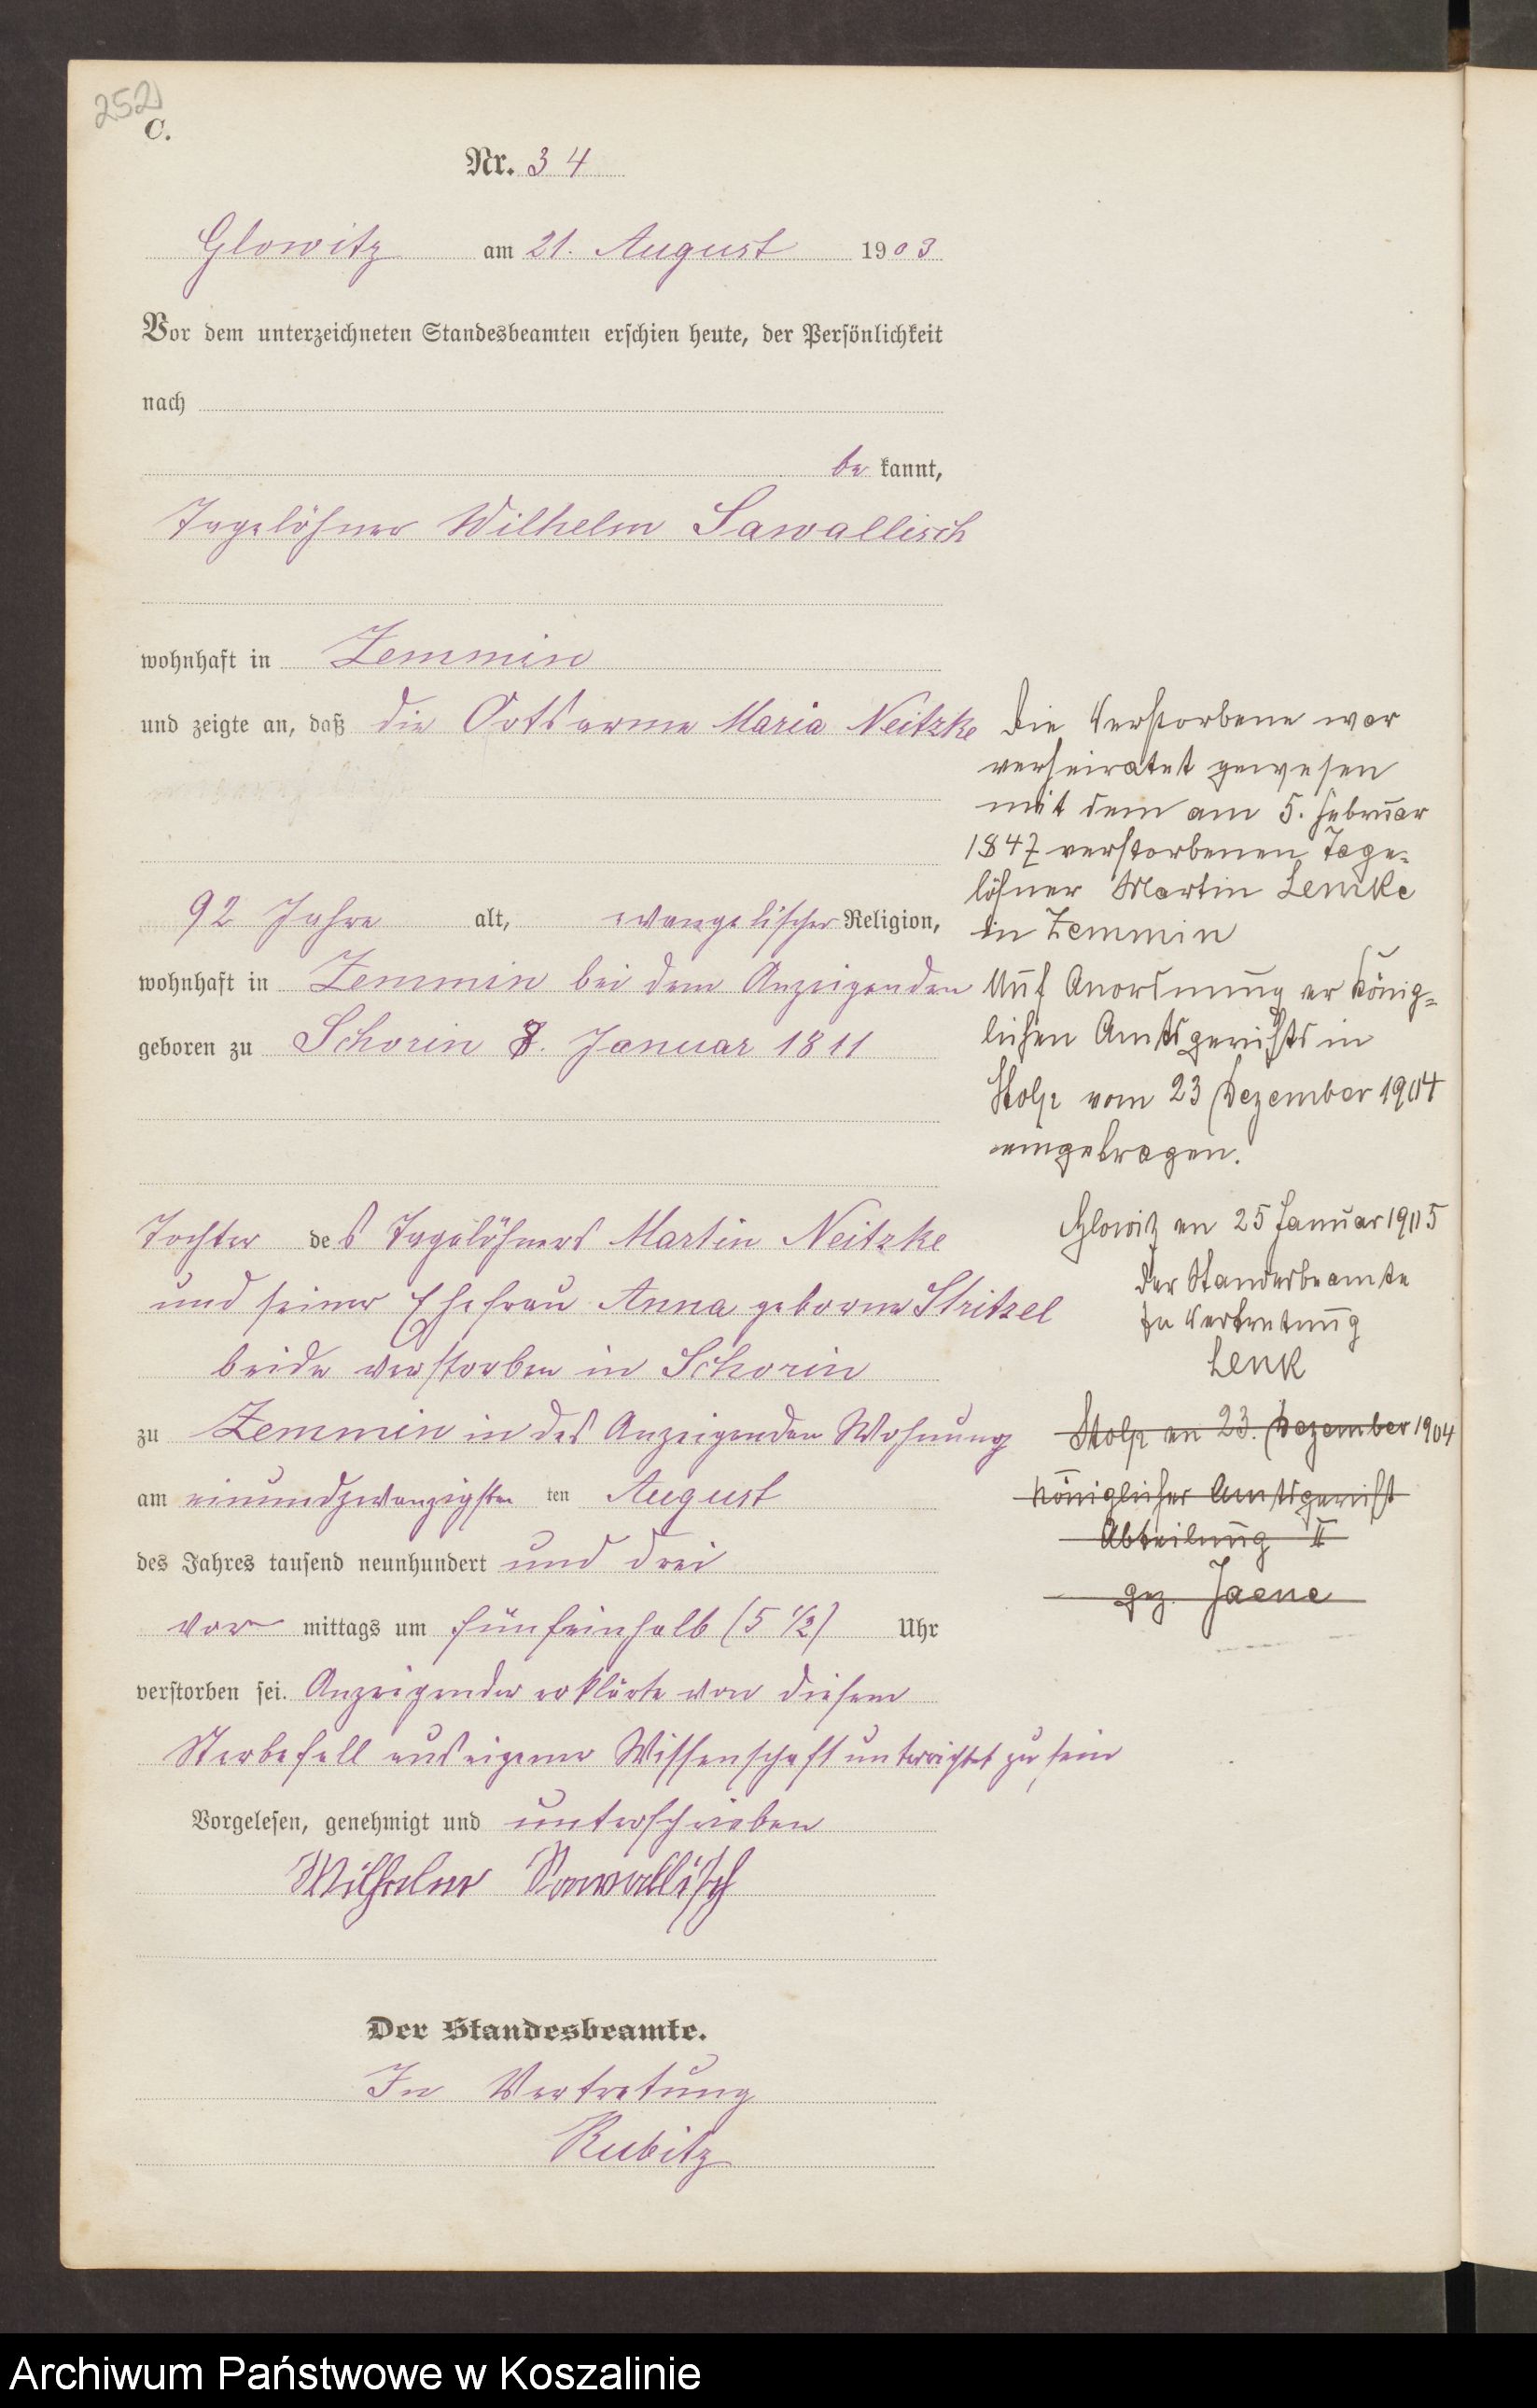 252
C.
Nr. 34
Glowitz am 21. August 1903
Vor dem unterzeichneten Standesbeamten erschien heute, der Persönlichkeit
nach
be kannt,
Tagelöhner Wilhelm Sawallisch
wohnhaft in Zemmin
und zeigte an, daß die Ortsarme Maria Neitzke
92 Jahre alt, evangelischer Religion,
wohnhaft in Zemmin bei dem Anzeigenden
geboren zu Schorin 8. Januar 1811
Tochter des Tagelöhners Martin Neitzke
und seiner Ehefrau Anna geborne Stritzel
beide verstorben in Schorin
zu Zemmin in des Anzeigenden Wohnung
am einundzwanzigsten ten August
des Jahres tausend neunhundert und drei
vor mittags um fünfeinhalb (5 1/2) Uhr
verstorben sei. Anzeigender erklärte von diesem
Sterbefall aus eigener Wissenschaft unterrichtet zu sein
Vorgelesen, genehmigt und unterschrieben
Wilhelm Sawallisch
Der Standesbeamte.
In Vertretung
Rubitz
Die Verstorbene war
verheiratet gewesen
mit dem am 5. Februar
1847 verstorbenen Tage-
löhner Martin Lemke
in Zemmin
Auf Anordnung er König-
lichen Amtsgerichts in
Stolp vom 23 Dezember 1904
eingetragen.
Glowitz en 25 Januar 1905
Der Standesbeamte
In Vertretung
Lenk
Stolp en 23. Dezember 1904
Königliches Amtsgericht
Abteilung II
gez. Jaene
Archiwum Państwowe w Koszalinie